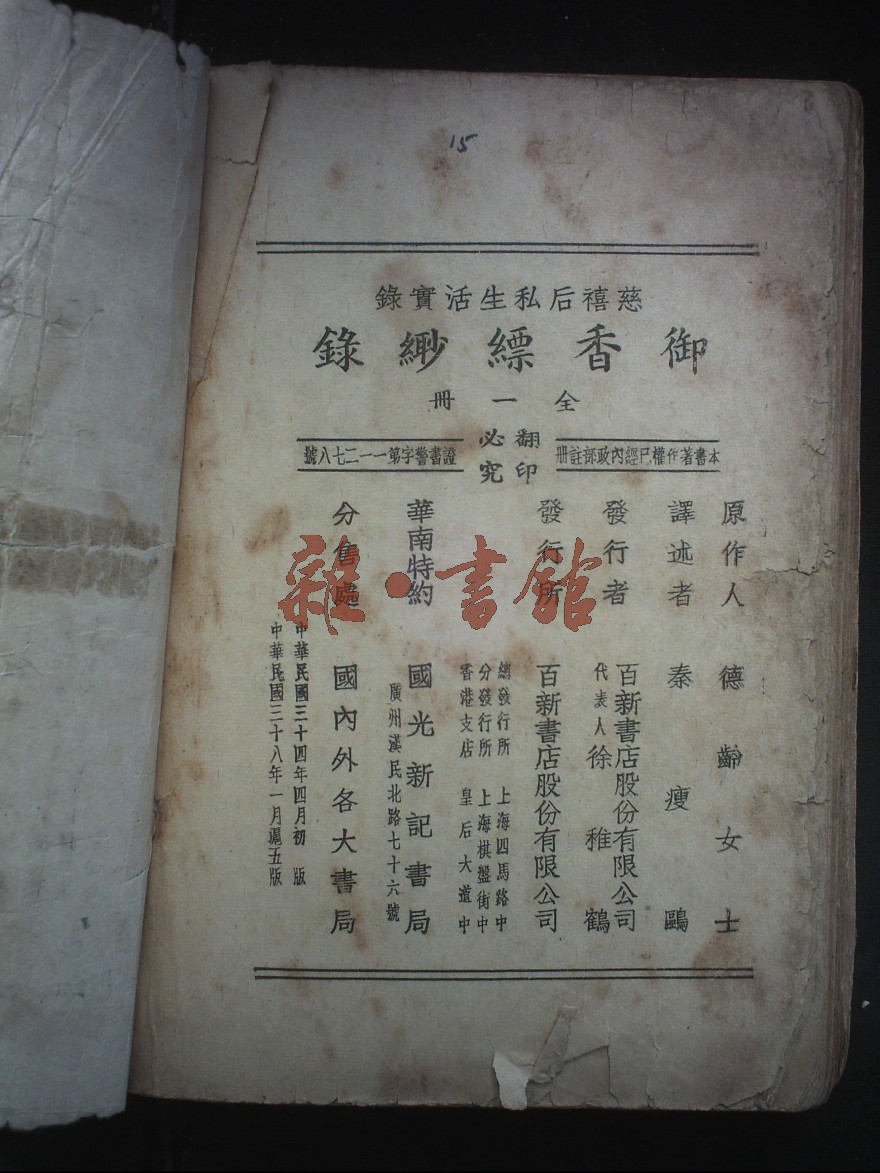 15
慈禧后私生活實錄
御香縹緲錄
全一冊
翻印必究
本書著作權已經內政部註冊
證書警字第一一二七八號
原作人 德齡女士
譯述者 秦瘦鷗
發行者 百新書店股份有限公司
代表人 徐稚鶴
發行所 百新書店股份有限公司
總發行所 上海四馬路中
分發行所 上海棋盤街中
香港支店 皇后大道中
華南特約 國光新記書局
廣州漢民北路七十六號
分售處 國內外各大書局
中華民國三十四年四月初版
中華民國三十八年一月滬五版
雜·書館